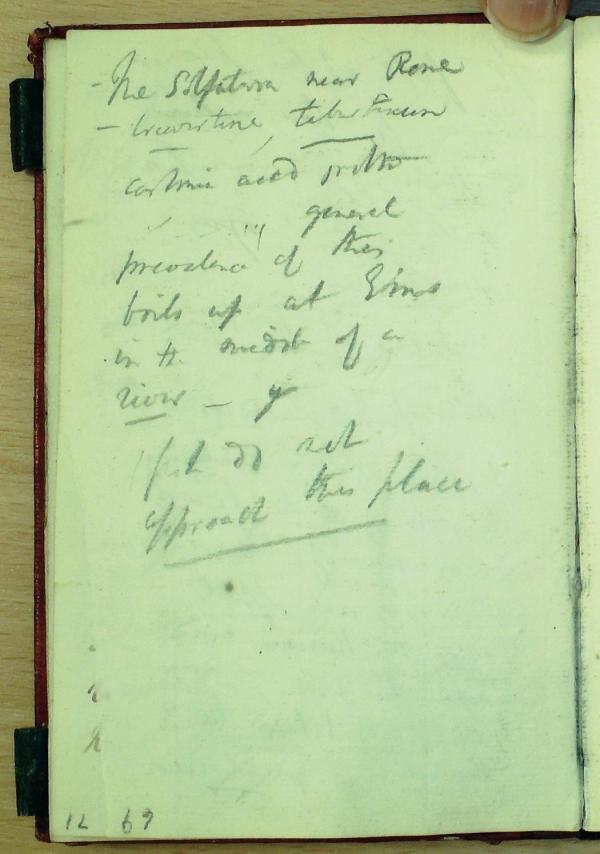 - The Solfaterra near Rome
- travertine, tiburtinum
carbonic acid
" " general
prevalence of this
boils up at Ems
in the middle of a
river -
fish do not
approach this place
12 69